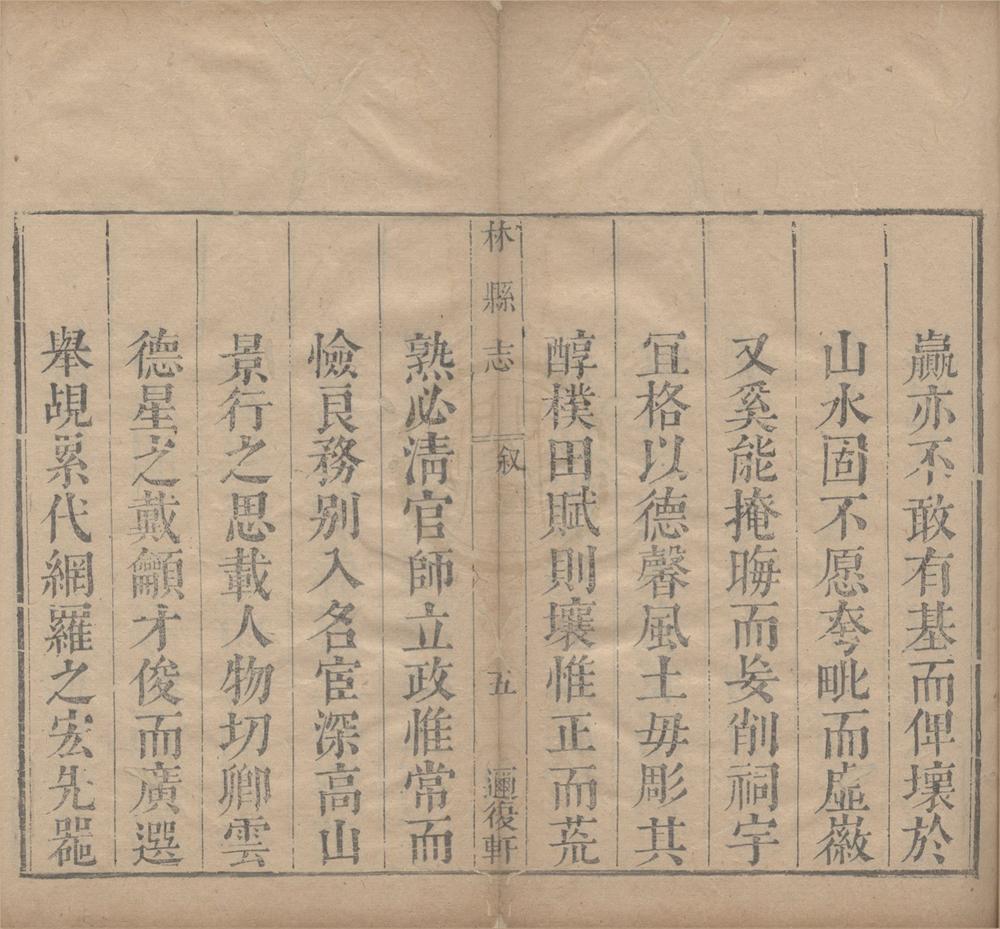 羸亦不敢有基而俾壞於
山水固不愿夸毗而虛徽
又奚能掩晦而妄削祠宇
冝格以德馨風土毋彫其
醇樸田賦則壤惟正而荒
林縣志 叙 五 邇復軒
熟必淸官師立政惟常而
憸良務别入名宦深高山
景行之思載人物切卿雲
德星之戴籲才俊而廣選
舉覘累代網羅之宏先器